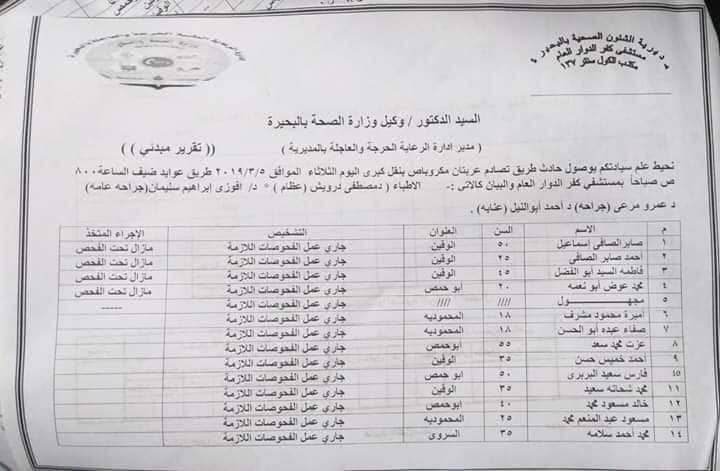 مديرية الشئون الصحية بالبحيرة
مستشفى كفر الدوار العام
مكتب الكول سنتر ١٣٧
السيد الدكتور / وكيل وزارة الصحة بالبحيرة
( مدير ادارة الرعاية الحرجة والعاجلة بالمديرية ) (( تقرير مبدئي ))
نحيط علم سيادتكم بوصول حادث طريق تصادم عربتان مكروباص بنقل كبرى اليوم الثلاثاء الموافق ٢٠١٩/٣/٥ طريق عوايد ضيف الساعة ٨٠٠
ص صباحاً بمستشفي كفر الدوار العام والبيان كالاتى :- الاطباء ( دمصطفى درويش (عظام ) * د/ افوزى إبراهيم سليمان(جراحه عامه)
د عمرو مرعى (جراحه) د احمد أبوالنيل (عنايه) .
م الاسم السن العنوان التشخيص الإجراء المتخذ
١ صابر الصافى إسماعيل ٥٠ الوفين جاري عمل الفحوصات اللازمة مازال تحت الفحص
٢ احمد صابر الصافى ٢٥ الوفين جاري عمل الفحوصات اللازمة مازال تحت الفحص
٣ فاطمه السيد أبو الفضل ٤٥ الوفين جاري عمل الفحوصات اللازمة مازال تحت الفحص
٤ محمد عوض أبو نعمه ٢٠ ابو حمص جاري عمل الفحوصات اللازمة مازال تحت الفحص
٥ مجهـــــــــول //// //// جاري عمل الفحوصات اللازمة -----
٦ أميرة محمود مشرف ١٨ المحموديه جاري عمل الفحوصات اللازمة
٧ صفاء عبده أبو الحسن ١٨ المحموديه جاري عمل الفحوصات اللازمة
٨ عزت محمد سعد ٥٥ ابوحمص جاري عمل الفحوصات اللازمة
٩ احمد خميس حسن ٣٥ الوفين جاري عمل الفحوصات اللازمة
٤٥ فارس سعيد البربرى ٥٠ ابو حمص جاري عمل الفحوصات اللازمة
١١ محمد شحاته سعيد ٣٥ الوفين جاري عمل الفحوصات اللازمة
١٢ خالد مسعود محمد ٤٠ ابوحمص جاري عمل الفحوصات اللازمة
١٣ مسعود عبد المنعم محمد ٢٥ المحموديه جاري عمل الفحوصات اللازمة
١٤ محمد أحمد سلامه ٣٥ السروى جاري عمل الفحوصات اللازمة